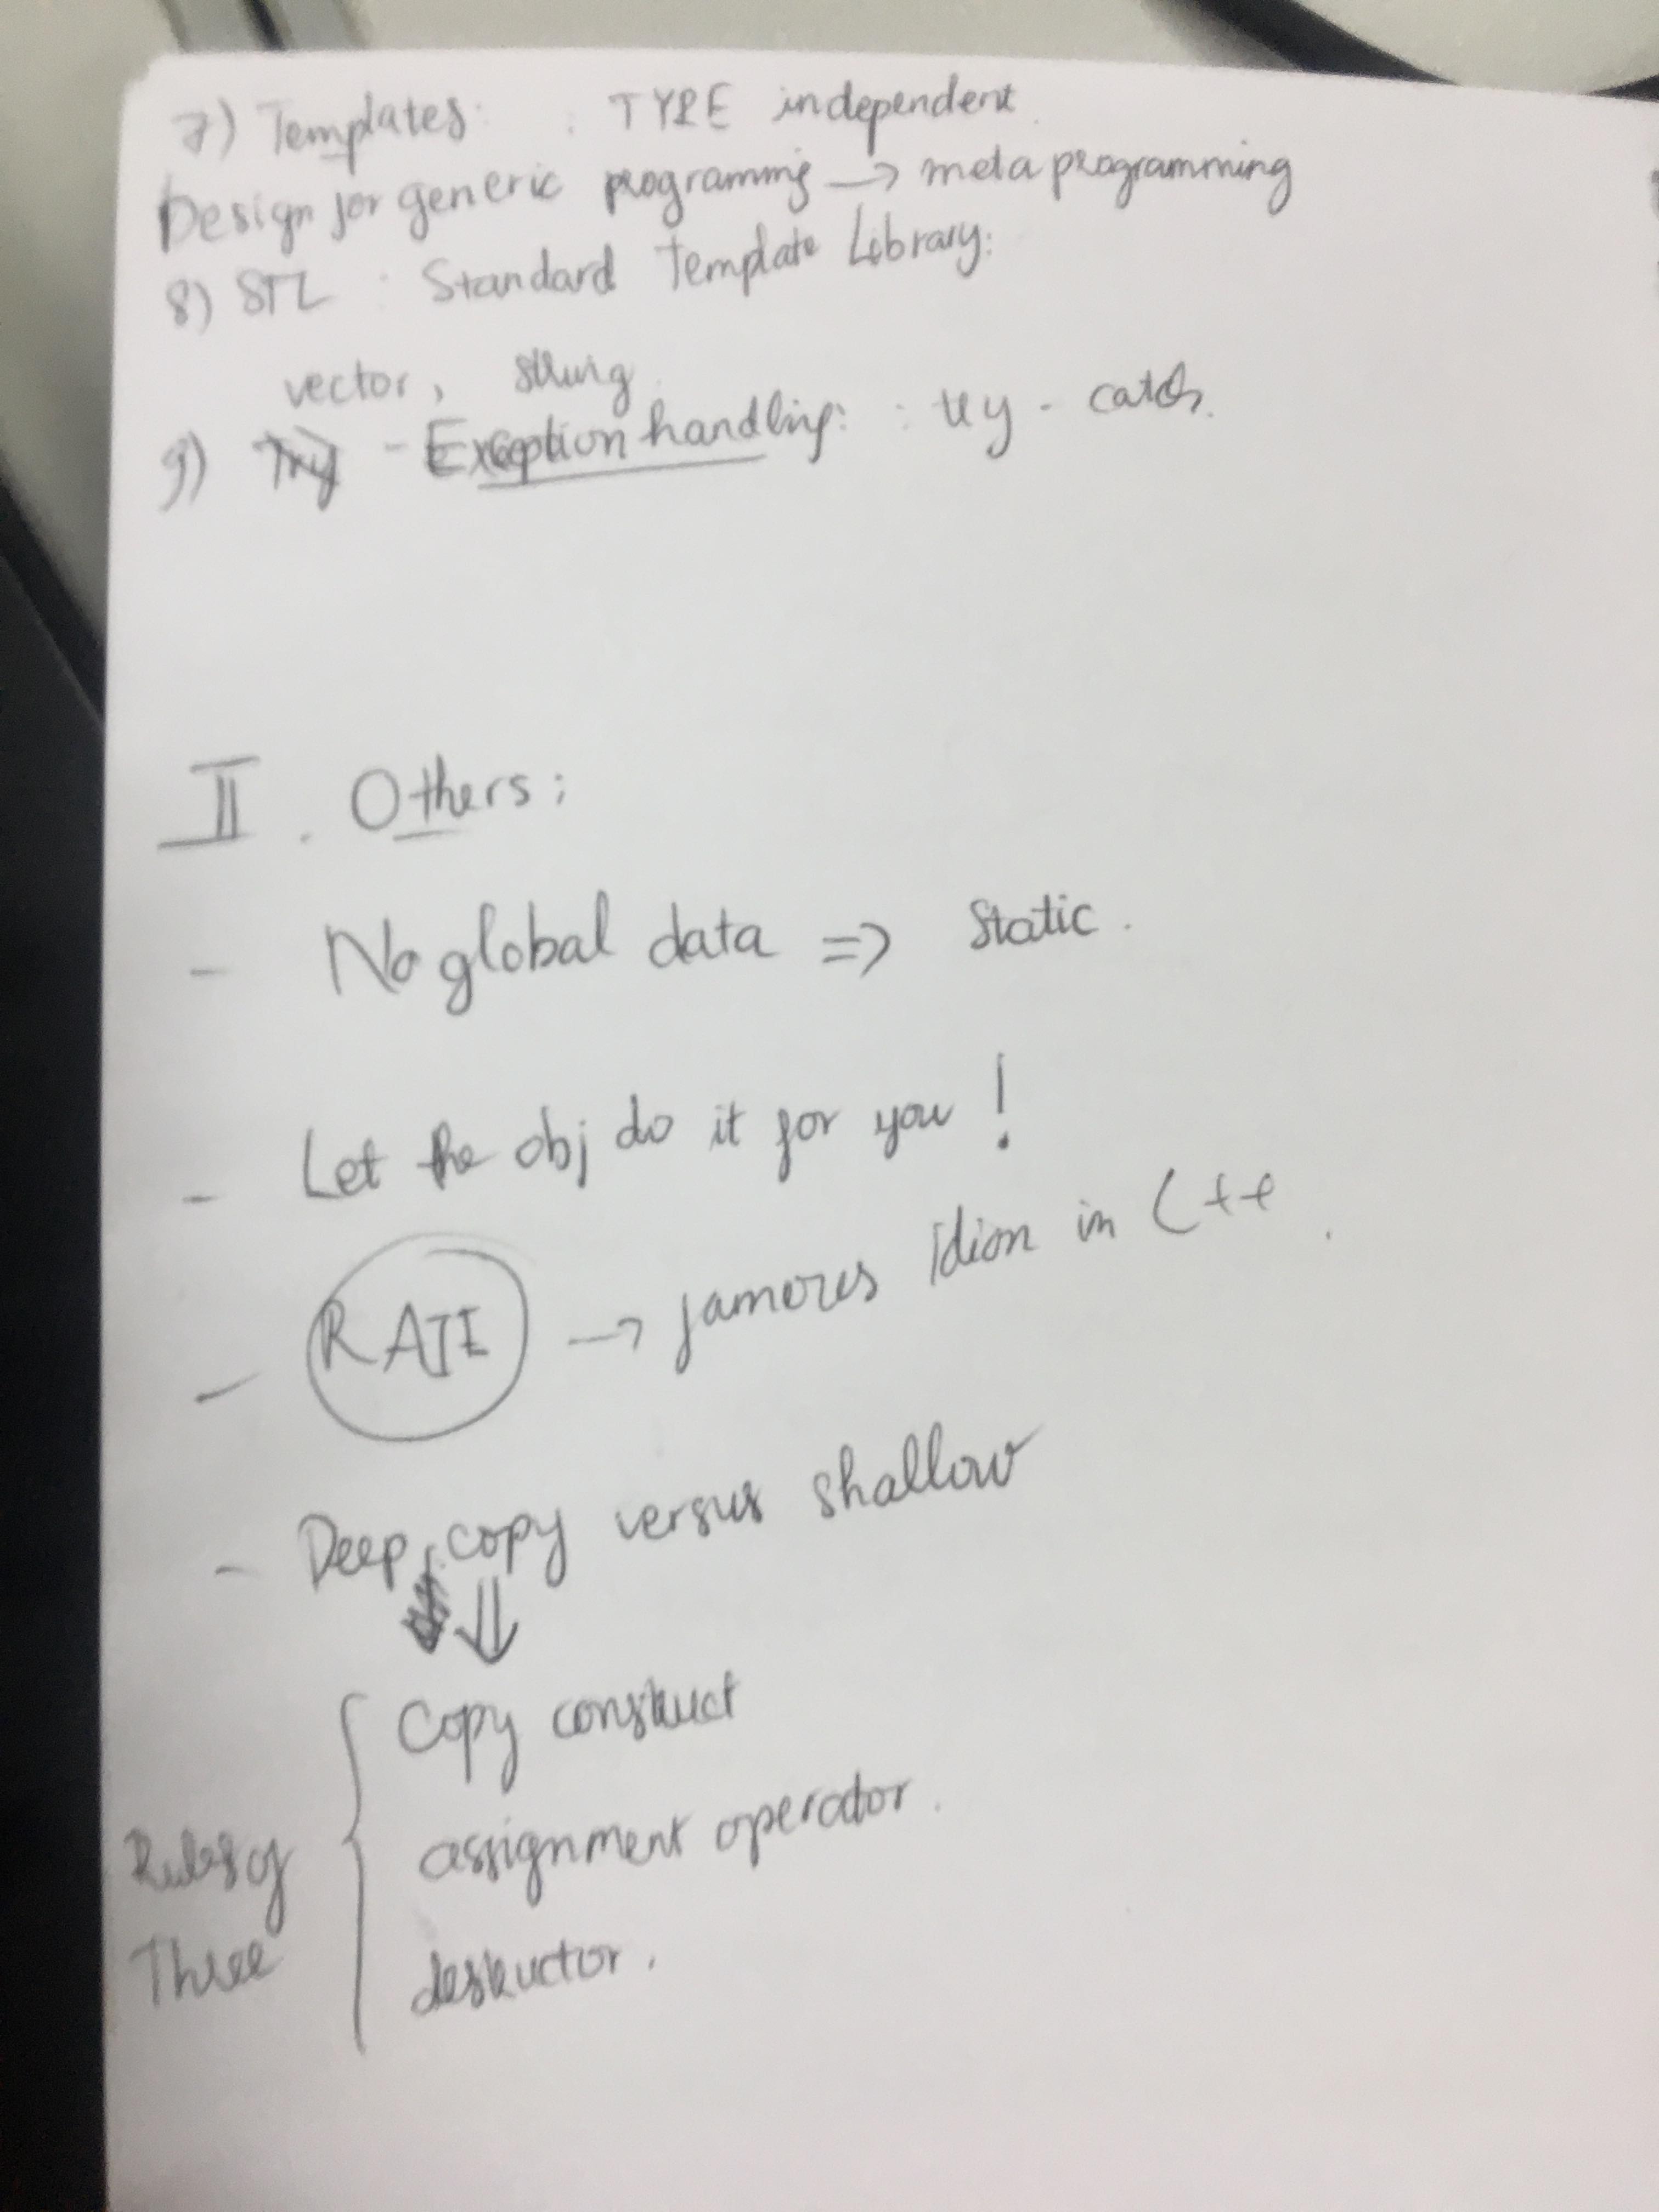 7) Templates: : TYPE independent.
Design for generic programming → meta programming
8) STL : Standard Template Library:
vector, string
9) Try - Exception handling: : try - catch.
II. Others:
- No global data => Static.
- Let the obj do it for you!
- RAII → famores Idion in C++.
- Deep copy versus shallow
⇓
Copy construct
assignment operator.
Rules of
Three
destructor.